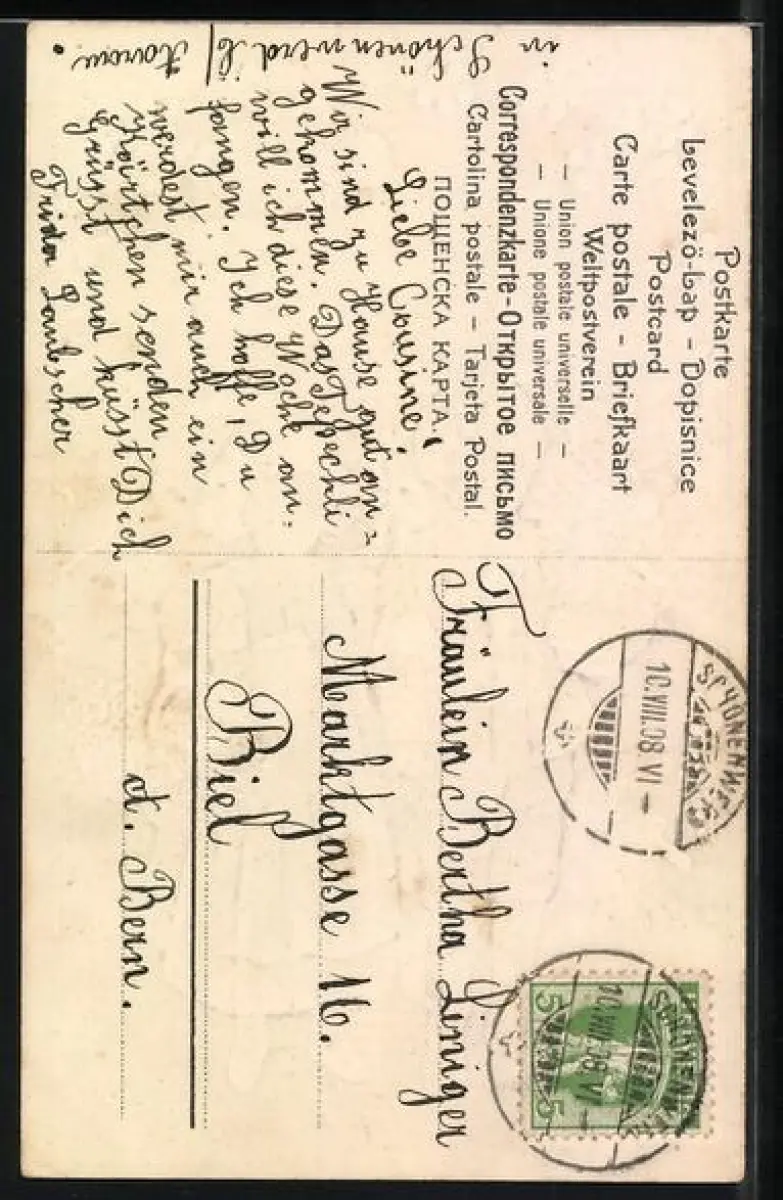 Postkarte
Levelezö-Lap - Dopisnice
Postcard
Carte postale - Briefkaart
Weltpostverein
— Union postale universelle —
— Unione postale universale —
Correspondenzkarte - Открытое письмо
Cartolina postale - Tarjeta Postal.
ПОЩЕНСКА КАРТА.
Liebe Cousine!
Wir sind zu Hause gut an=
gekommen. Das Teppechli
will ich diese Woche an=
fangen. Ich hoffe, Du
werdest mir auch ein
Kärtchen senden
Grüsst und küsst Dich
Frida Laubscher
in
Schönenwerd b/
Aarau.
Fräulein Bertha Liniger
Marktgasse 16.
Biel
ct. Bern.
SCHÖNENWERD
10.VIII.08.VI-
SCHÖNENWERD
10.VIII.08.VI-
5 5